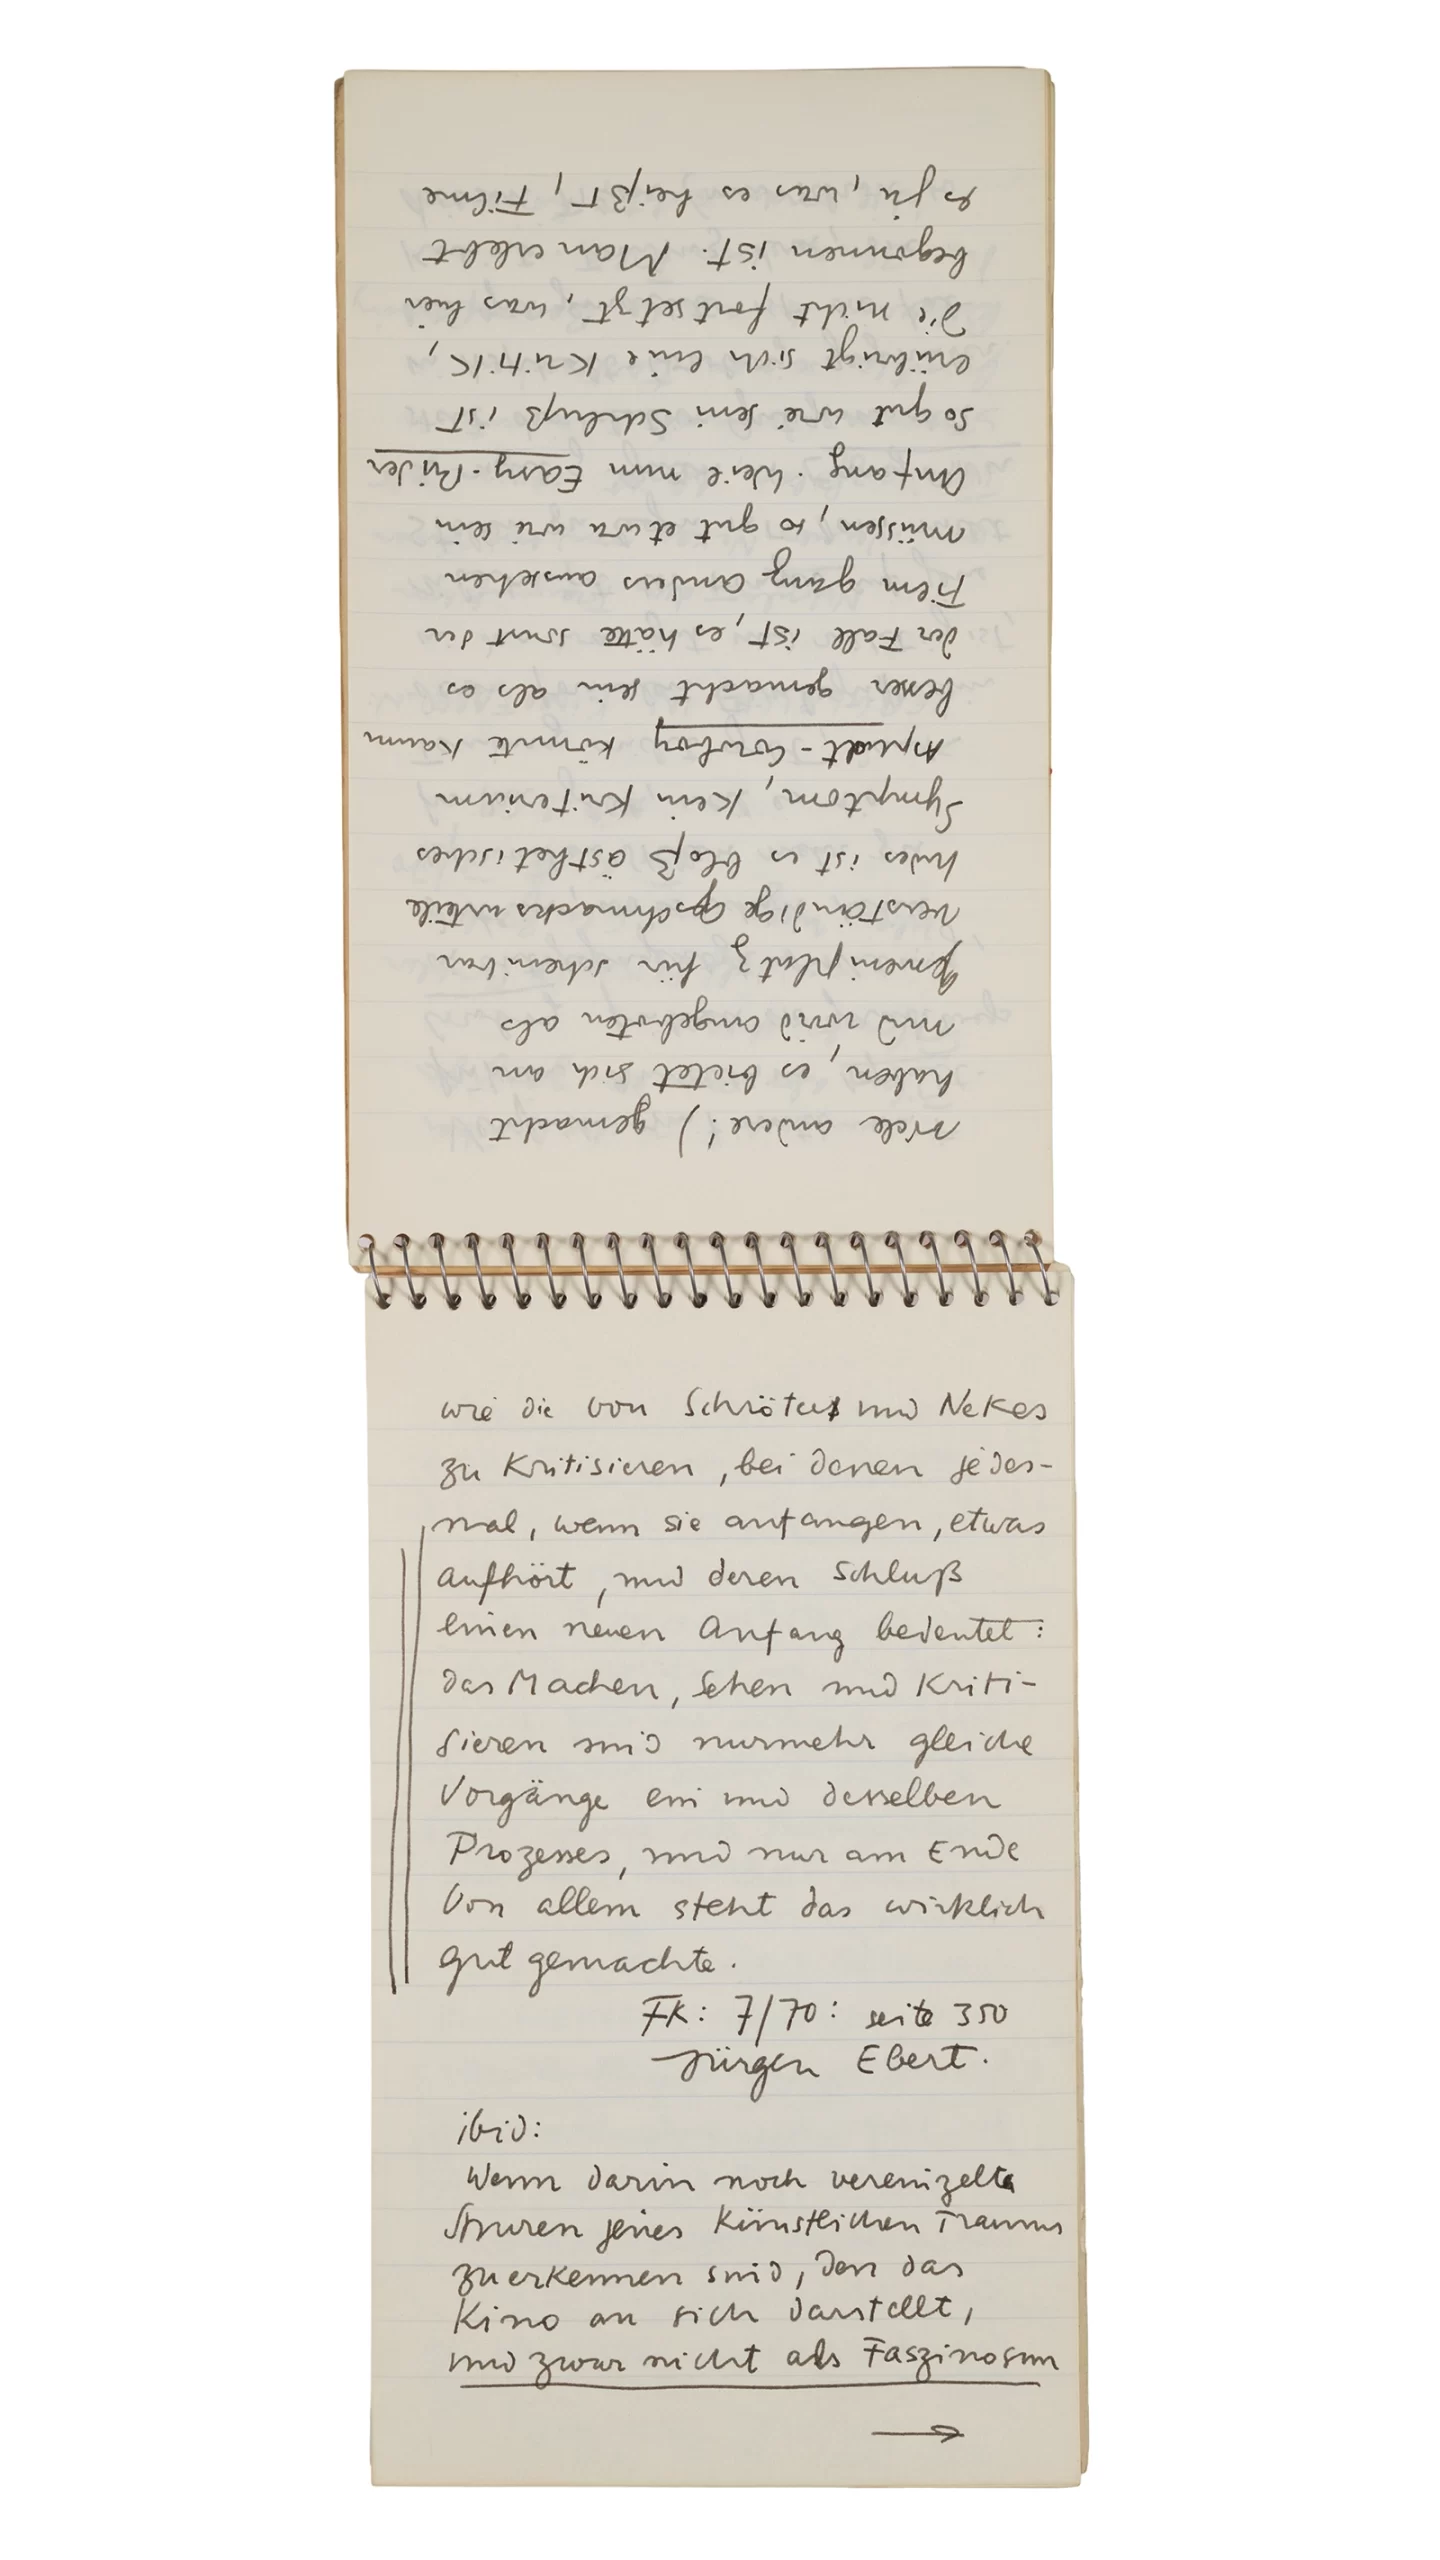 viele andere!) gemacht
haben, es bietet sich an
und wird angeboten als
Gemeinplatz für scheinbar
verständige Geschmacksurteile
Indes ist es bloß ästhetisches
Symptom, kein Kriterium
Asphalt-Cowboy könnte kaum
besser gemacht sein als es
der Fall ist, es hätte sonst der
Film ganz anders aussehen
müssen, so gut etwa wie sein
Anfang. Weil nun Easy-Rider
so gut wie sein Schluß ist
erübrigt sich eine Kritik,
die nicht fortsetzt, was hier
begonnen ist. Man erlebt
es ja, was es heißt, Filme
wie die von Schröter und Nekes
zu kritisieren, bei denen jedes-
mal, wenn sie anfangen, etwas
aufhört, und deren Schluß
einen neuen Anfang bedeutet:
das Machen, Sehen und Kriti-
sieren sind nurmehr gleiche
Vorgänge ein und desselben
Prozesses, und nur am Ende
von allem steht das wirklich
gut gemachte.
FK: 7/70: seite 350
Jürgen Ebert.
ibid:
Wenn darin noch vereinzelte
Spuren jenes künstlichen Traums
zu erkennen sind, den das
Kino an sich darstellt,
und zwar nicht als Faszinosum
→